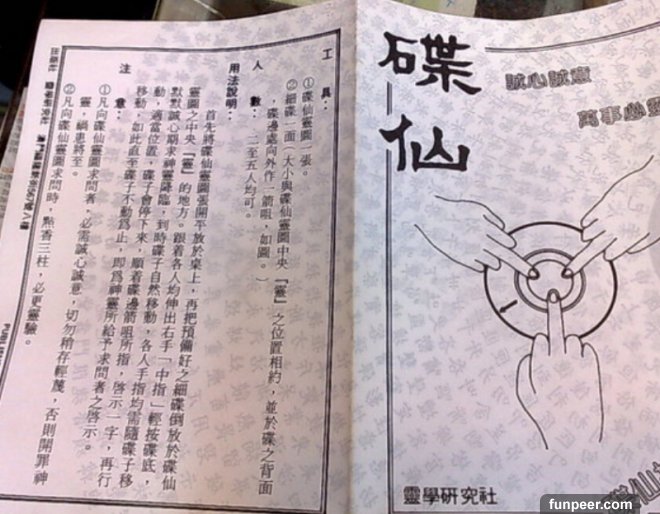 碟仙
誠心誠意
萬事必靈
靈學研究社
工具：
①碟仙靈圖一張。
②細碟一面（大小與碟仙靈圖中央「靈」之位置相約，並於碟之背面
碟邊處向外作一箭咀，如圖。）
人數：二至五人均可。
用法說明：
首先將碟仙靈圖張開平放於桌上，再把預備好之細碟倒放於碟仙
靈圖之中央「靈」的地方。跟着各人均伸出右手「中指」輕按碟底，
默默誠心期求神靈降臨，到時碟子自然移動，各人手指均需隨碟子移
動，適當位置，碟子會停下來，順着碟邊箭咀所指，啓示一字，再行
移動，如此直至碟子不動爲止，即爲神靈所給予求問者之啓示。
注意：
①凡向碟仙靈圖求問者，必需誠心誠意，切勿稍存輕蔑，否則開罪神
靈，禍患將至。
②凡向碟仙靈圖求問時，點香三柱，必更靈驗。
funpeer.com